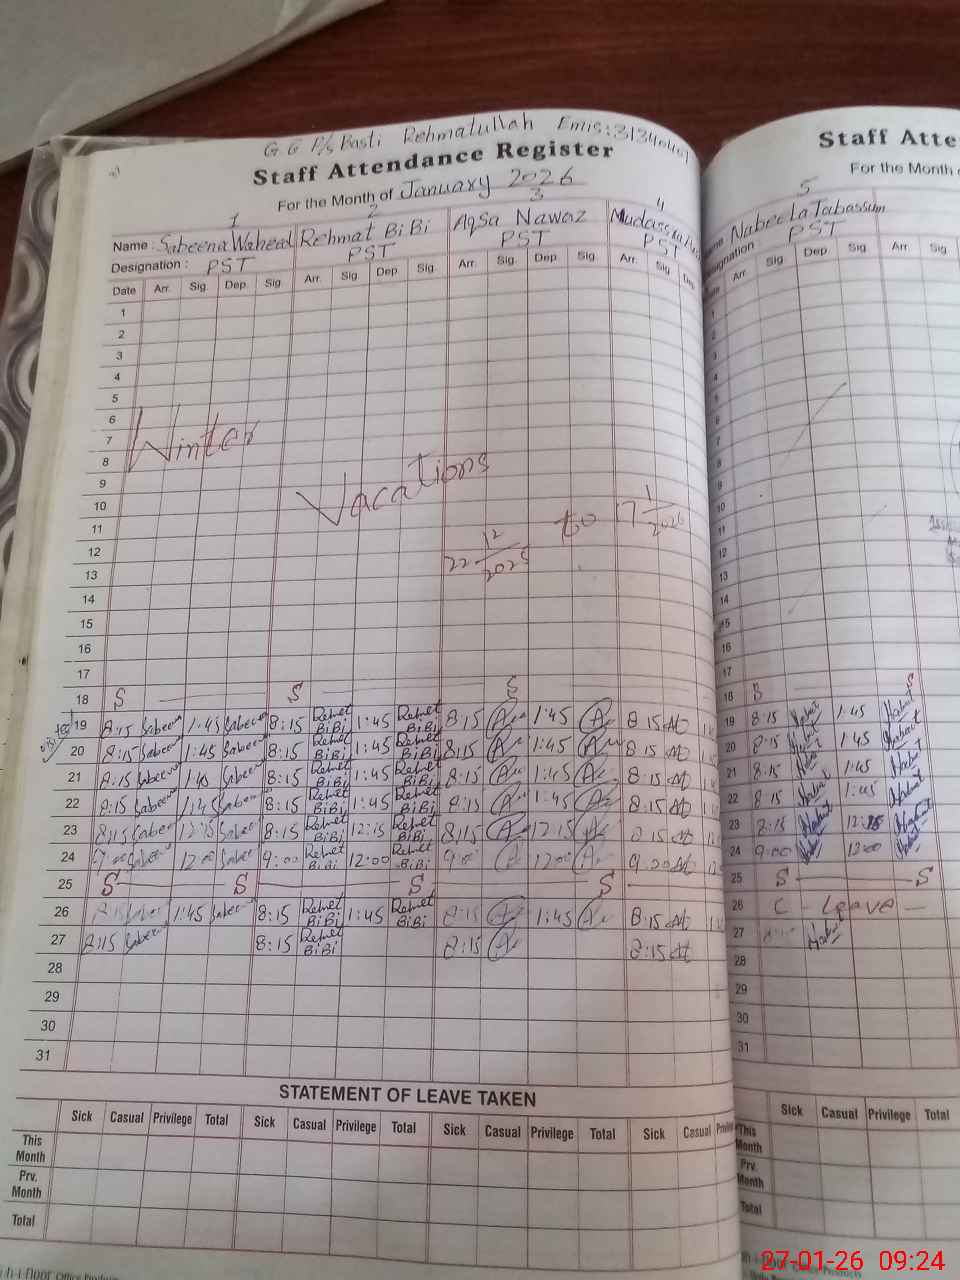 G.G P/s Basti Rehmatullah Emis:
Staff Attendance Register
For the Month of January 2026
1 2 3 4
Name : Sabeena Waheed Rehmat BiBi Aqsa Nawaz Mudassra
Designation : PST PST PST PST
Date Arr. Sig. Dep. Sig. Arr. Sig. Dep. Sig. Arr. Sig. Dep. Sig. Arr. Sig. Dep.
1
2
3
4
5
6
7
8
9
10
11
12
13
14
15
16
17
Winter
Vacations
22 12/2025 to 17 1/2026
18 S S S
19 8:15 Sabeena 1:45 Sabeena 8:15 Rehmet BiBi 1:45 Rehmet BiBi 8:15 1:45 8:15
20 8:15 Sabeena 1:45 Sabeena 8:15 Rehmet BiBi 1:45 Rehmet BiBi 8:15 1:45 8:15
21 8:15 Sabeena 1:45 Sabeena 8:15 Rehmet BiBi 1:45 Rehmet BiBi 8:15 1:45 8:15
22 8:15 Sabeena 1:45 Sabeena 8:15 Rehmet BiBi 1:45 Rehmet BiBi 8:15 1:45 8:15
23 8:15 Sabeena 12:15 Sabeena 8:15 Rehmet BiBi 12:15 Rehmet BiBi 8:15 12:15 8:15
24 9:00 Sabeena 12:00 Sabeena 9:00 Rehmet BiBi 12:00 Rehmet BiBi 9:00 12:00 9:00
25 S S S S
26 8:15 Sabeena 1:45 Sabeena 8:15 Rehmet BiBi 1:45 Rehmet BiBi 8:15 1:45 8:15
27 8:15 Sabeena 8:15 Rehmet BiBi 8:15 8:15
28
29
30
31
STATEMENT OF LEAVE TAKEN
Sick Casual Privilege Total Sick Casual Privilege Total Sick Casual Privilege Total Sick Casual
This Month
Prv. Month
Total
Staff Atte
For the Month
5
Nabeela Tabassum
PST
Arr. Sig. Dep Sig. Arr. Sig.
1
2
3
4
5
6
7
8
9
10
11
12
13
14
15
16
17
18 S S
19 8:15 1:45
20 8:15 1:45
21 8:15 1:45
22 8:15 1:45
23 8:15
24 9:00 12:00
25 S S
26 C - Leave -
27
28
29
30
31
Sick Casual Privilege Total
This Month
Prv. Month
Total
27-01-26 09:24